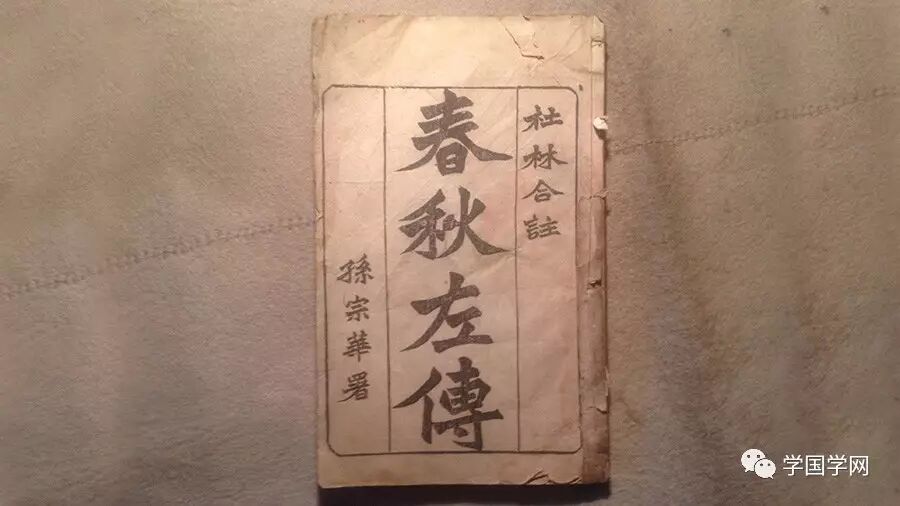 杜林合註
春秋左傳
孫宗華署
学国学网